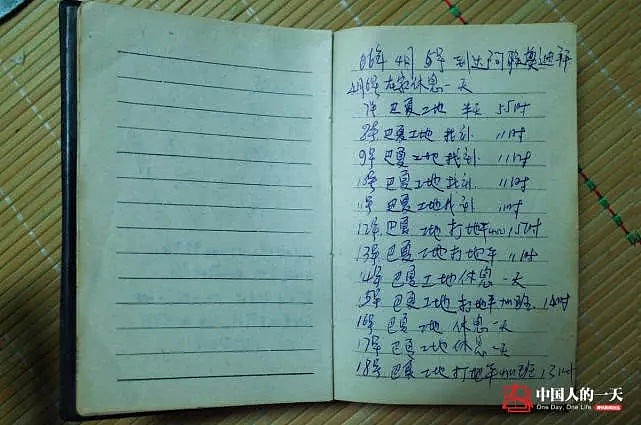 06年4月5号到达阿联酋迪拜
4月6号在家休息一天
7号巴夏工地 半天 5.5小时
8号巴夏工地 找补 11小时
9号巴夏工地 找补 11小时
10号巴夏工地 找补 11小时
11号巴夏工地 找补 11小时
12号巴夏工地 打地平加班 15小时
13号巴夏工地 打地平 11小时
14号巴夏工地 休息一天
15号巴夏工地 打地平加班 14小时
16号巴夏工地 休息一天
17号巴夏工地 休息一天
18号巴夏工地 打地平加班 13小时
中国人的一天
One Day, One Life